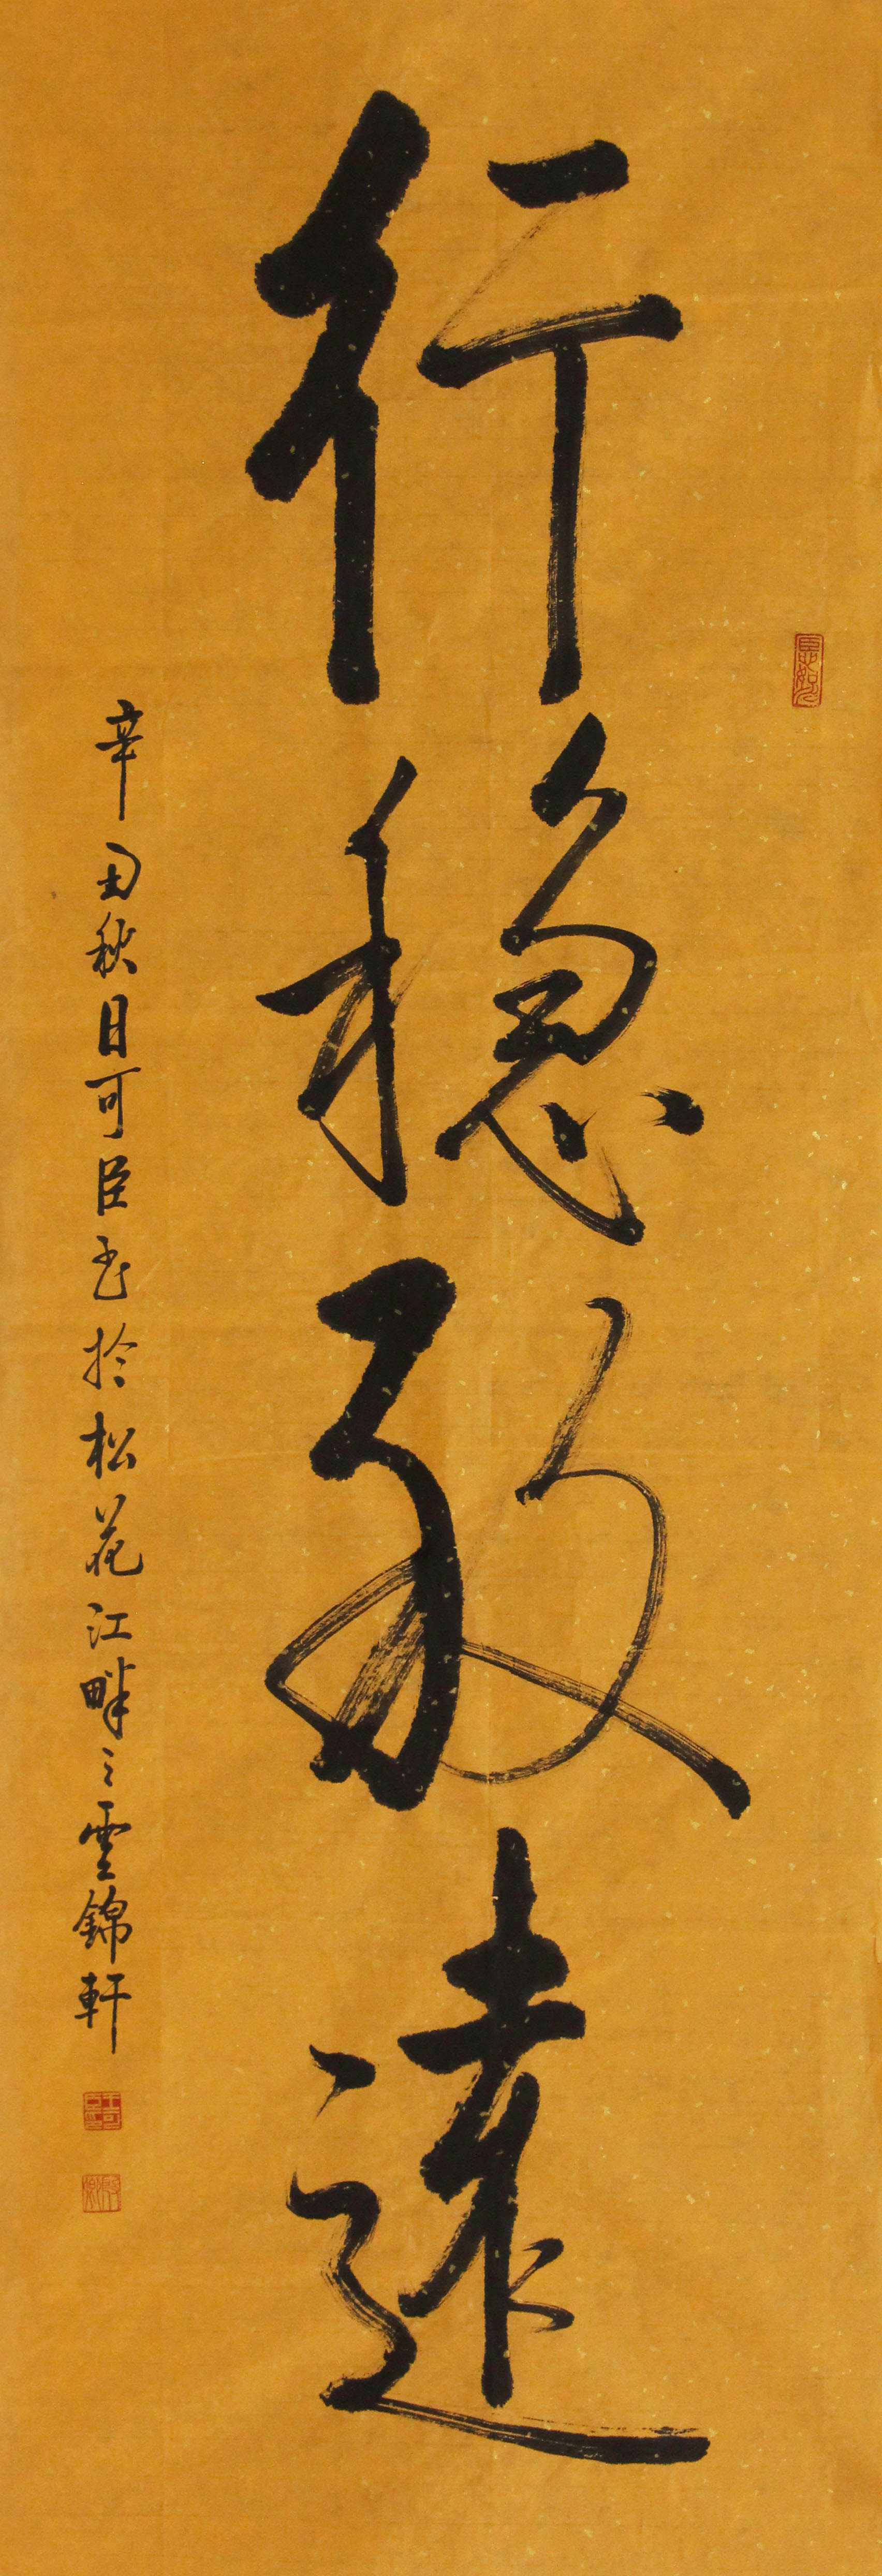 行穩致遠
辛丑秋日可臣书於松花江畔之雲錦軒